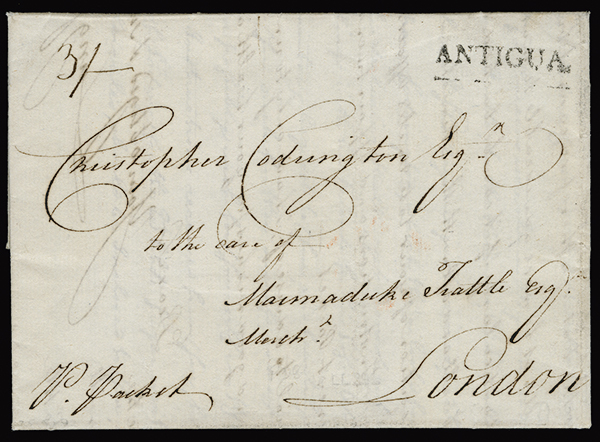 3/-
ANTIGUA.
Christopher Codrington Esqr.
to the care of
Marmaduke Trattle Esqr.
Mercht.
P. Packet
London